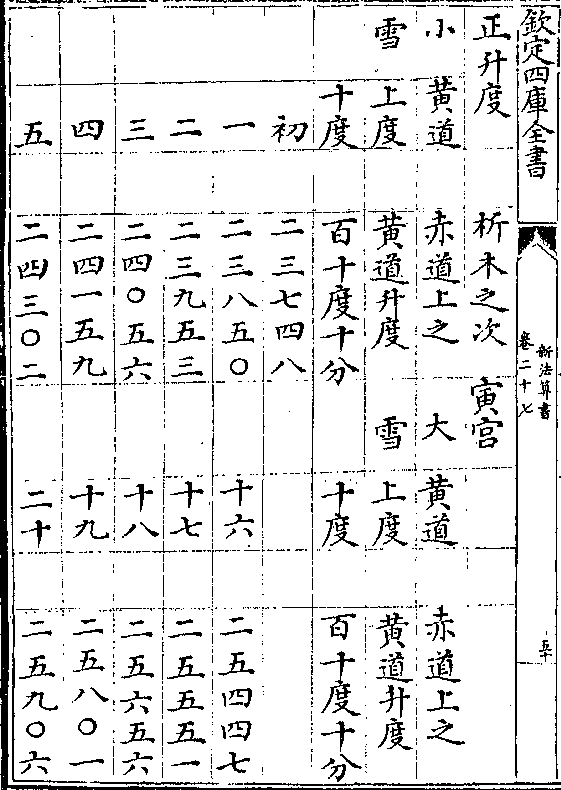 欽定四庫全書
新法算書
卷二十七
五十
正升度 析木之次 寅宮
小 黃道 赤道上之 大 黃道 赤道上之
雪 上度 黃道升度 雪 上度 黃道升度
十度 百十度十分 十度 百十度十分
初 二三七四八
一 二三八五〇 十六 二五四四七
二 二三九五三 十七 二五五五一
三 二四〇五六 十八 二五六五六
四 二四一五九 十九 二五八〇一
五 二四三〇二 二十 二五九〇六